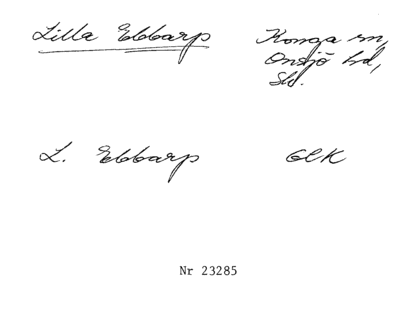 Lilla Ebbarp
Konga sn,
Onsjö hd,
Sk.
L. Ebbarp
GEK
Nr 23285